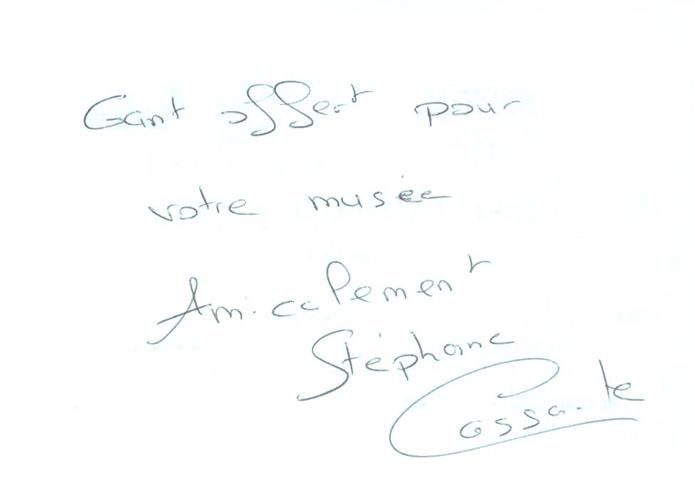 Gant offert pour
votre musée
Amicalement
Stéphane
Cossante